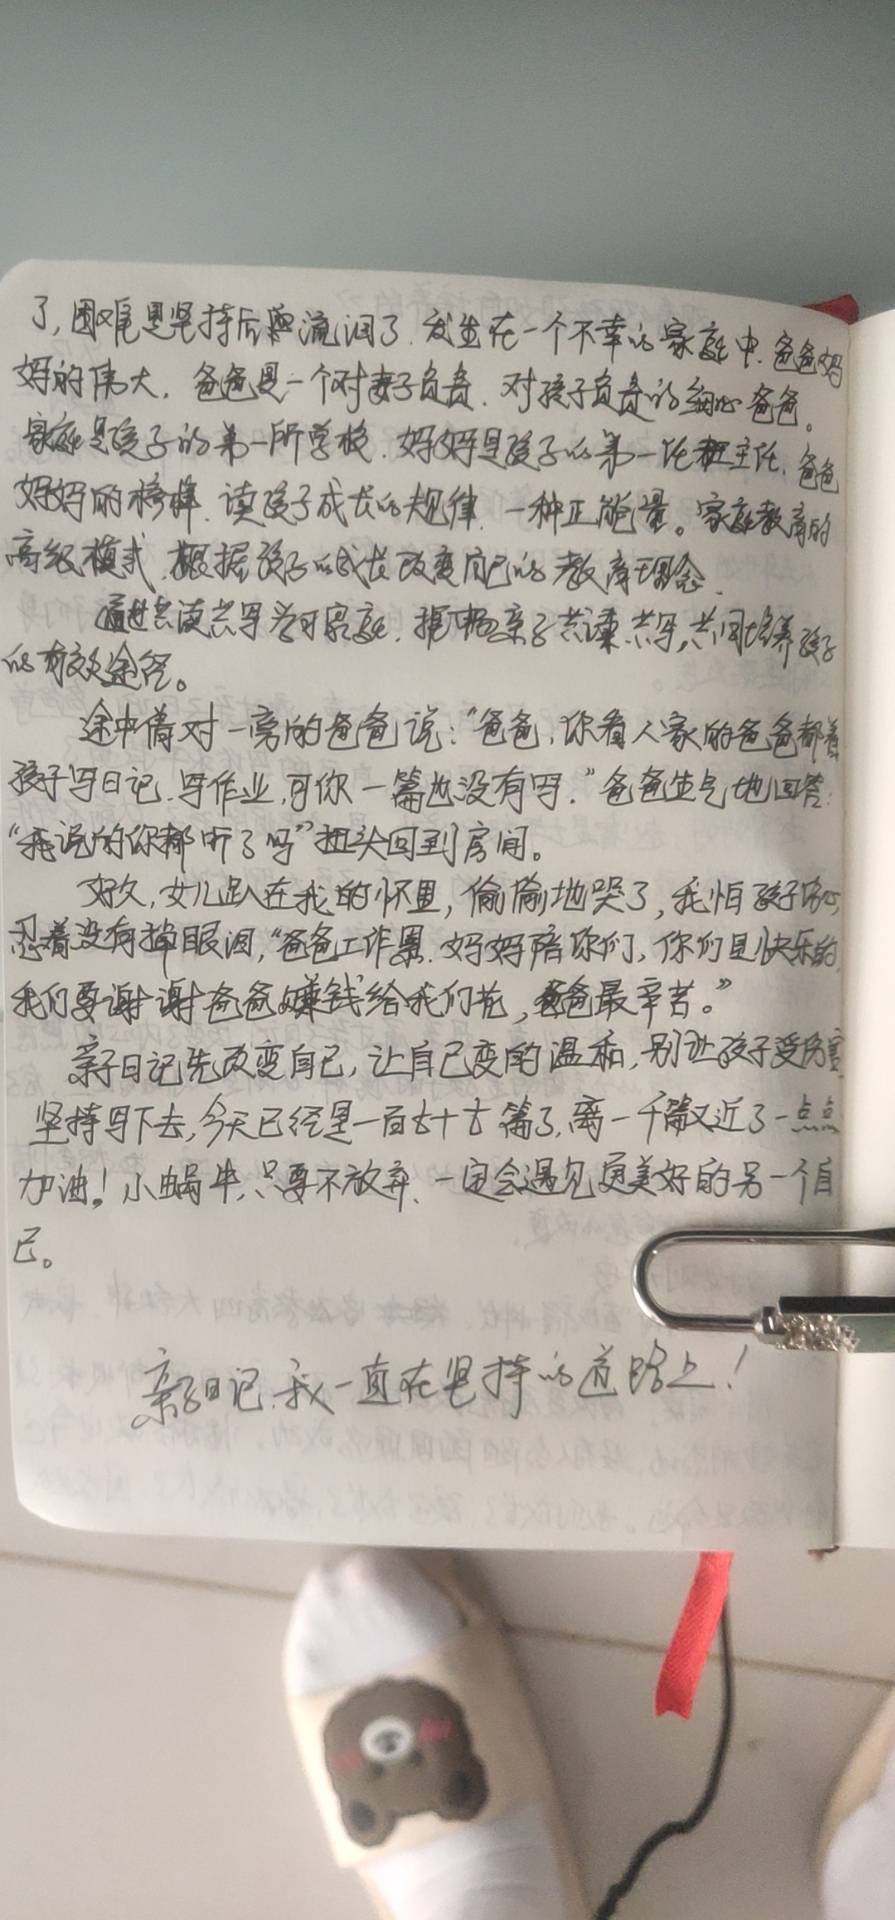 了，困难是坚持后流泪了．发生在一个不幸的家庭中．爸爸妈
妈的伟大．爸爸是一个对妻子负责．对孩子负责的细心爸爸。
家庭是孩子的第一所学校．妈妈是孩子的第一任班主任．爸爸
妈妈的榜样．读孩子成长的规律．一种正能量。家庭教育的
高级模式．根据孩子的成长改变自己的教育理念．
通过共读共写 家庭．亲子共读．共写，共同培养孩子
的有效途径。
途中倩对一旁的爸爸说：“爸爸，你看人家的爸爸都着
孩子写日记．写作业，可你一篇也没有写．”爸爸生气地回答：
“我说的你都听了吗”扭头回到房间。
好久，女儿趴在我的怀里，偷偷地哭了，我怕孩子伤心，
忍着没有掉眼泪，“爸爸工作累．妈妈陪你们，你们是快乐的，
我们要谢谢爸爸赚钱给我们花，爸爸最辛苦。”
亲子日记先改变自己，让自己变的温和，别让孩子受伤害
坚持写下去，今天已经是一百七十七篇了，离一千篇又近了一点点
加油！小蜗牛，只要不放弃．一定会遇见更美好的另一个自
己。
亲子日记，我一直在坚持的道路上！